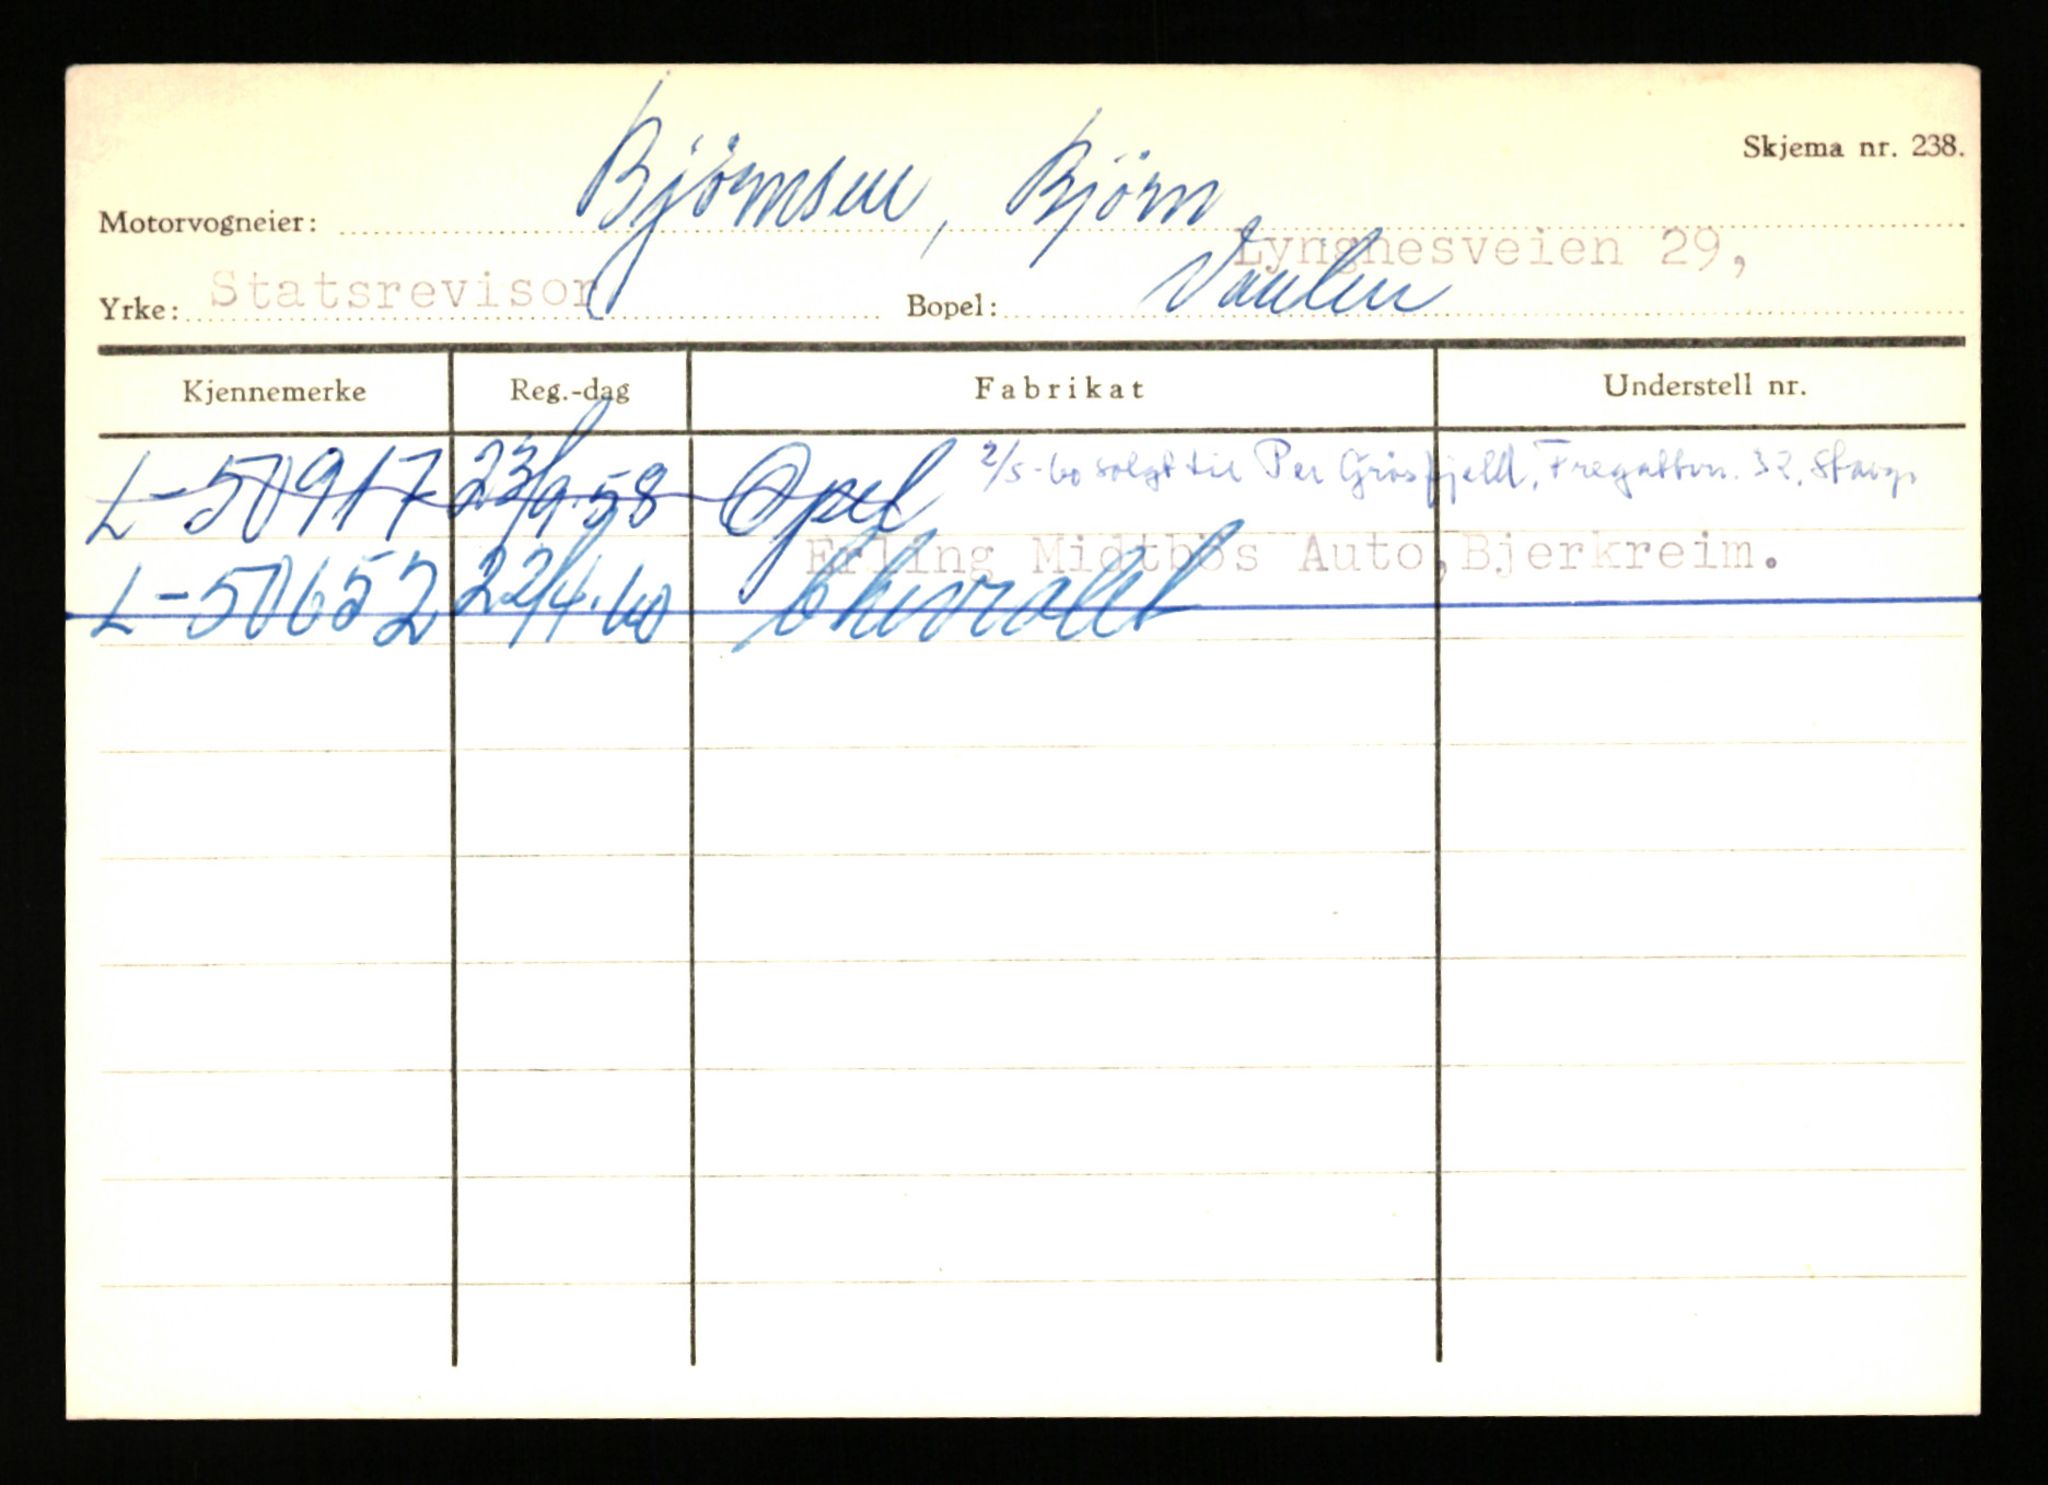 Skjema nr. 238.
Motorvogneier: Björnsen, Björn
Lyngnesveien 29,
Yrke: Statsrevisor Bopel: Vaulen
Kjennemerke Reg.-dag Fabrikat Understell nr.
L-50917 23/9.58 Opel 2/5-60 solgt til Per Gråsfjeld, Fregattvn. 32, Stavgr.
Erling Midtbös Auto, Bjerkreim.
L-50652 22/4.60 Chevrolet